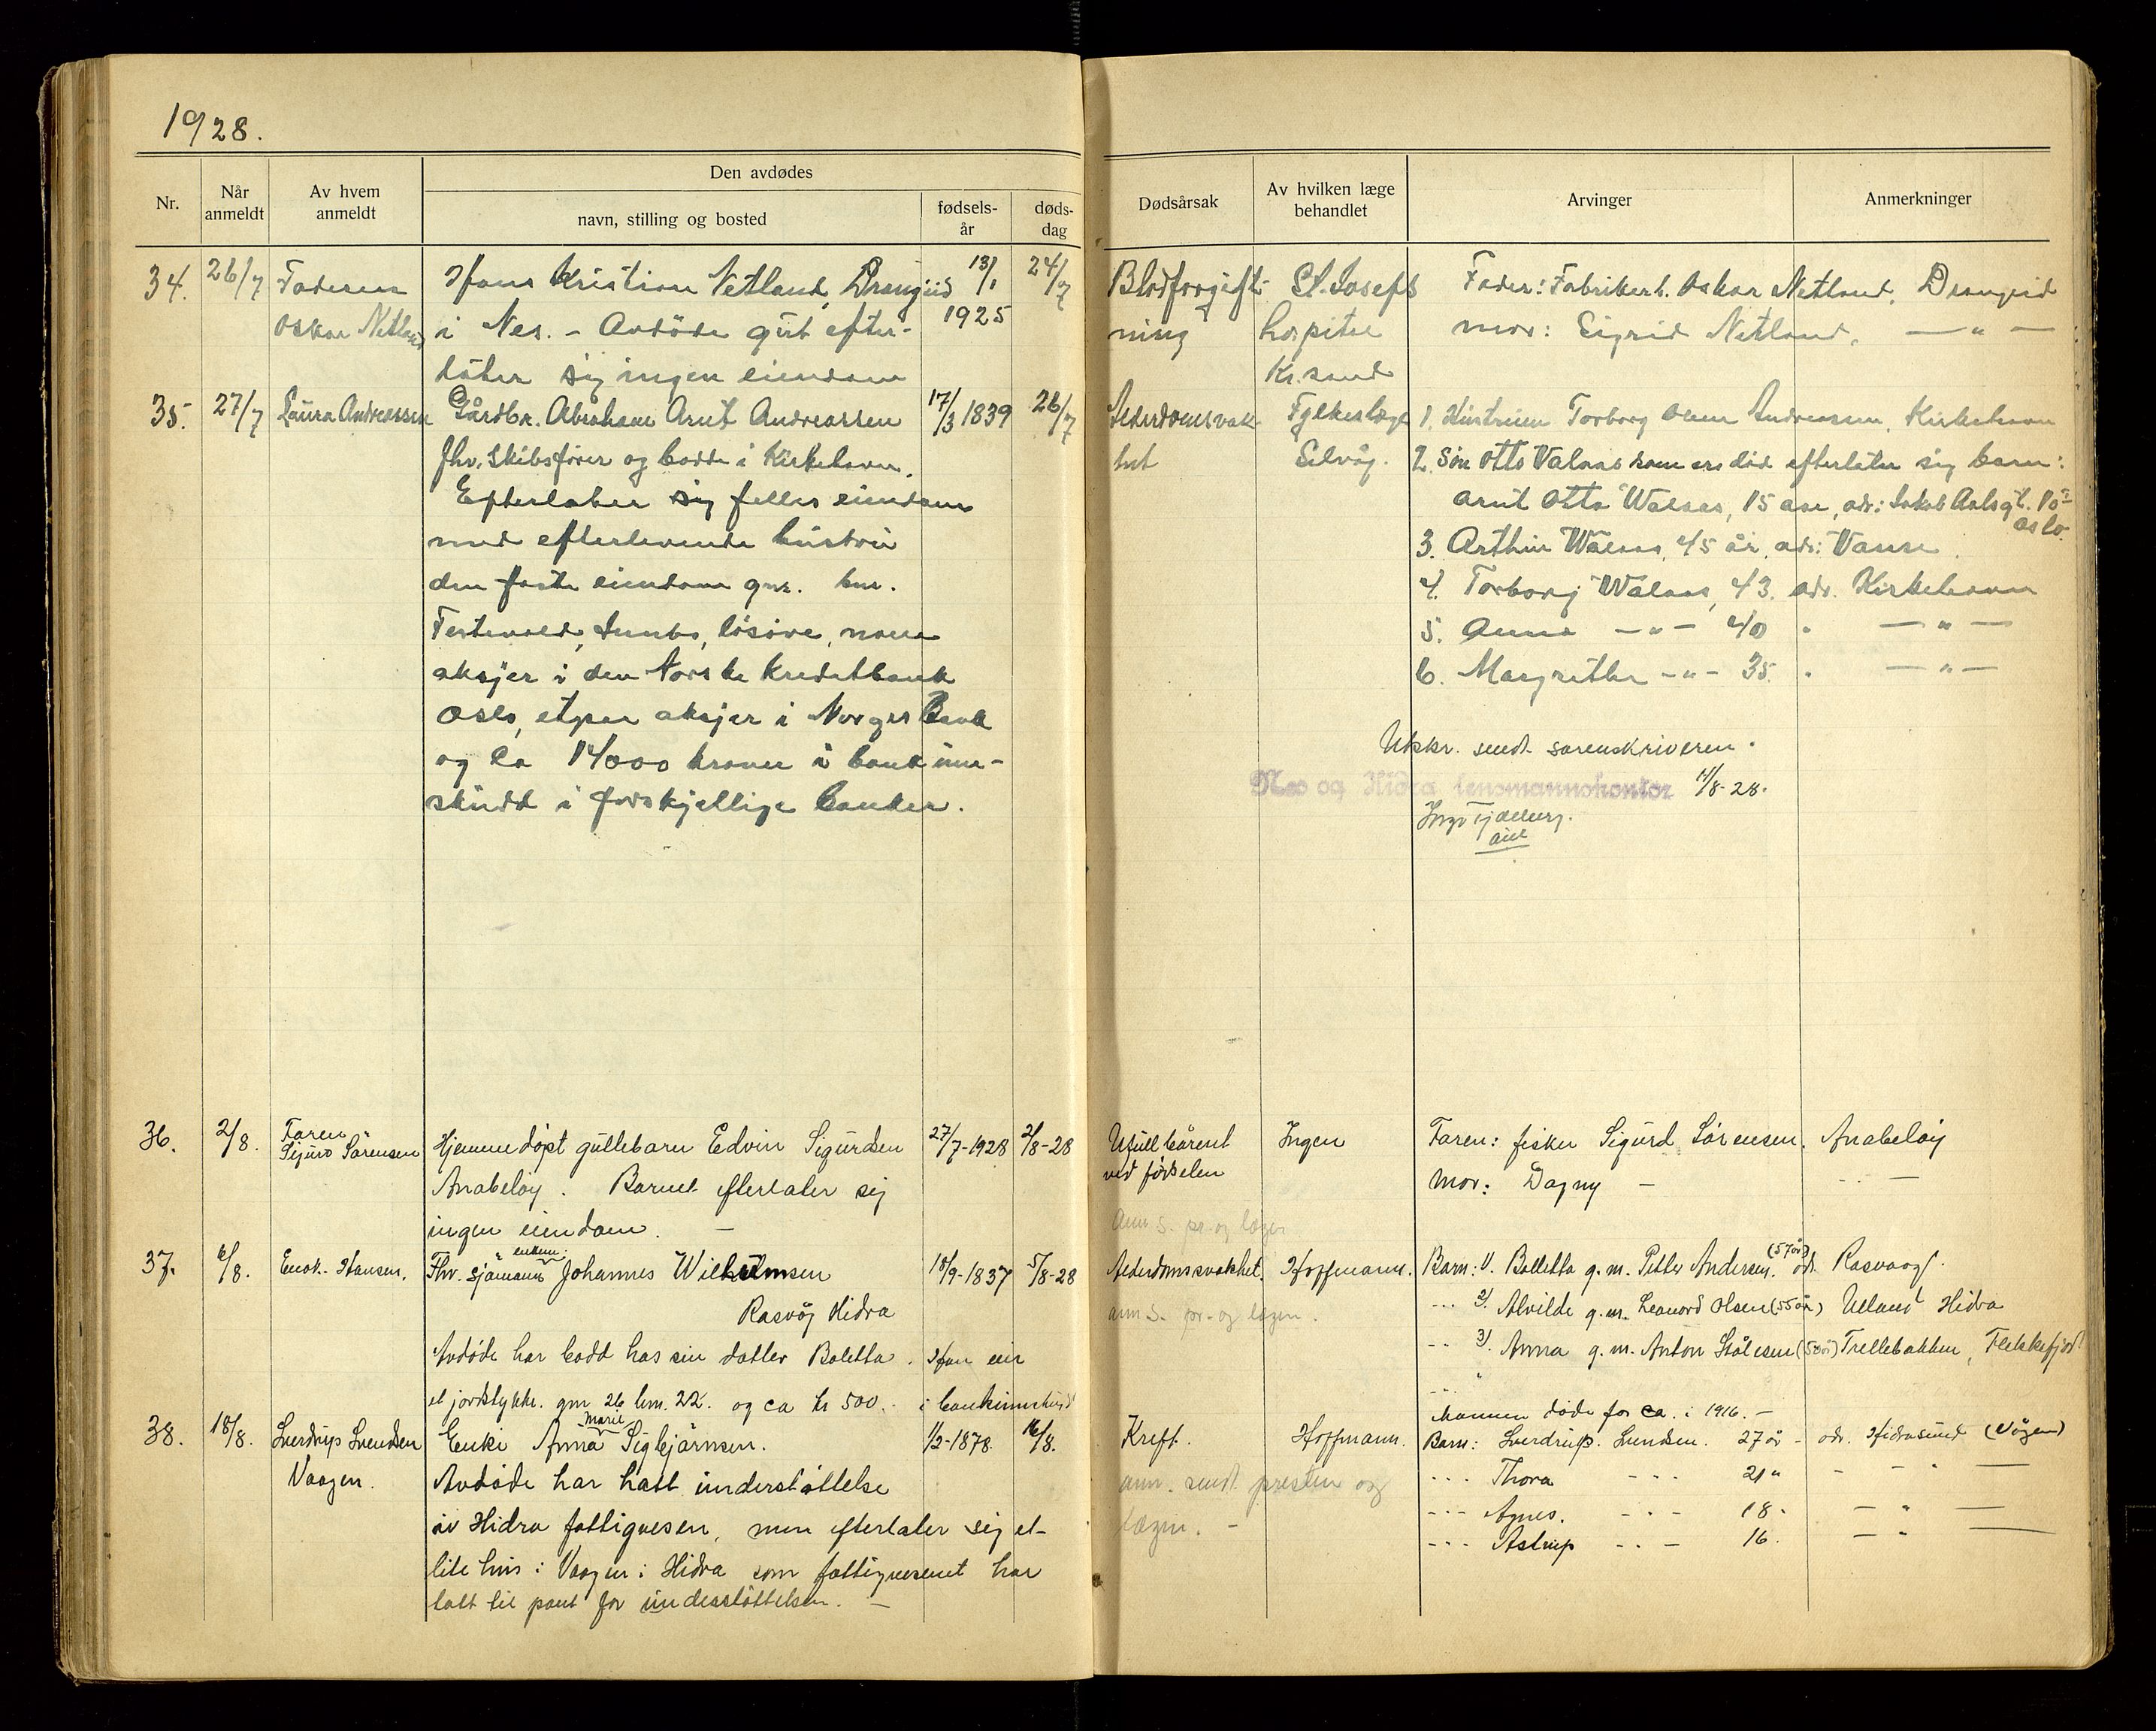 1928.
Nr.
Når anmeldt
Av hvem anmeldt
Den avdødes
navn, stilling og bosted
fødsels-år
døds-dag
Dødsårsak
Av hvilken læge behandlet
Arvinger
Anmerkninger
34. 26/7 Faderen Hans Kristian Netland, Drangeid 13/1 24/7 Blodforgift- St. Josefs Fader: Fabrikert. Oskar Netland, Drangeid
Oskar Netland i Nes. - Avdöde gut efter- 1925 ning hospital mor: Sigrid Netland, — " —
låter sig ingen eiendom Kr.sand
35. 27/7 Laura Andreassen Gårdbr. Abraham Arnt Andreassen 17/3 1839 26/7 Alderdomsvak- Fylkeslæge 1. Hustruen Torborg Andreassen, Kirkehavn
fhv. Skibsfører og bodde i Kirkehavn. het Selvåg. 2. Sön Otto Valaas som er död efterlater sig barn:
Efterlater sig felles eiendom Arnt Otto Walaas, 15 aar, adr: Jakob Aalsgt. 10 Oslo.
med efterlevende hustru 3. Arthur Walaas, 45 år, adr: Vanse.
den faste eiendom gnr. bnr. 4. Torborg Walaas, 43. adr. Kirkehavn
løsöre, noen 5. Anna — " — 40 " — " —
aksjer i den Norske Kreditbank 6. Margrethe - " - 35. " — " —
Oslo, et par aksjer i Norges Bank
og ca 14000 kroner i bankinn-
skudd i forskjellige banker.
Utskr. sendt sorenskriveren.
Nes og Hidra lensmannskontor 14/8-28.
36. 2/8. Faren Sigurd Sörensen Hjemmedøpt guttebarn Edvin Sigurdsen 27/7-1928 2/8-28 Ufullbårent Ingen Faren: fisker Sigurd Sörensen. Anabeløy
Anabeløy. Barnet efterlater sig ved fødselen Mor: Dagny — — —
ingen eiendom. —
Ann s. pr. og lægen
37. 6/8. Enok Hansen. Fhv. sjømann enkem. Johannes Wilhelmsen 18/9-1837 5/8-28 Alderdomssvakhet. Hoffmann. Barn: 1/. Bolletta g.m. Petter Andersen. (57 år) adr. Rasvaag.
Rasvåg Hidra ann s. pr. og lægen. --- 2/. Alvilde g.m. Leonard Olsen (55 år) Ueland Hidra
Avdøde har bodd hos sin datter Boletta. Han eier -- 3/. Anna g.m. Anton Stålesen Trellebakken, Flekkefjord
et jordstykke. gnr 26 bnr. 22. og ca kr 500.- i bankinnskudd
38. 18/8. Sverdrup Svendsen Enke Anna Marie Sigbjørnsen. 1/2-1878. 16/8. Kreft. Hoffmann. Mannen døde for ca. i 1916. —
Vaagen. Barn: Sverdrup. Svendsen. 27 år - adr. Hidrasund (Vågen)
Avdøde har hatt understøttelse ann. sendt presten og --- Thora --- 21 " - - " —
av Hidra fattigvesen, men efterlater sig et- lægen. - --- Agnes. - - - 18. — " —
lite hus i Vaagen i Hidra som fattigvesenet har --- Astrup - - - 16. — " —
tatt til pant for understøttelsen. —